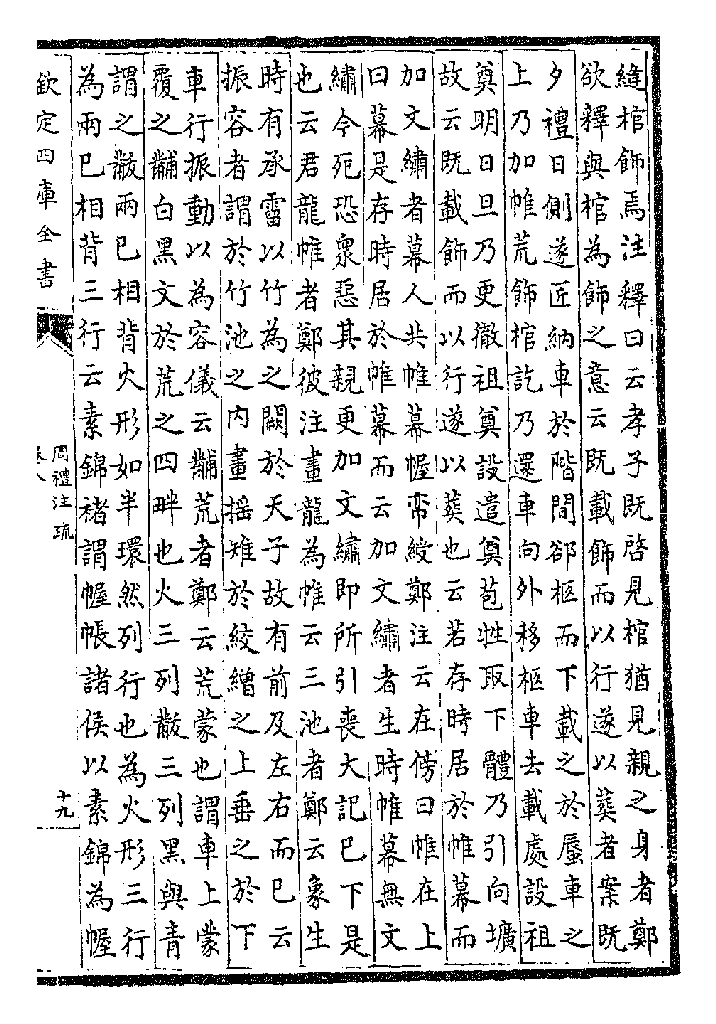 縫棺飾焉注釋曰云孝子既啓見棺猶見親之身者鄭
欲釋與棺為飾之意云既載飾而以行遂以葬者案既
夕禮日側遂匠納車於階間郤柩而下載之於蜃車之
上乃加帷荒飾棺訖乃還車向外移柩車去載處設祖
奠明日旦乃更徹祖奠設遣奠苞牲取下體乃引向壙
故云既載飾而以行遂以葬也云若存時居於帷幕而
加文繡者幕人共帷幕幄帟綬鄭注云在傍曰帷在上
曰幕是存時居於帷幕而云加文繡者生時帷幕無文
繡今死恐衆惡其親更加文繡即所引喪大記已下是
也云君龍帷者鄭彼注畫龍為帷云三池者鄭云象生
時有承霤以竹為之闕於天子故有前及左右而已云
振容者謂於竹池之內畫揺雉於絞繒之上垂之於下
車行振動以為容儀云黼荒者鄭云荒蒙也謂車上蒙
覆之黼白黑文於荒之四畔也火三列黻三列黑與青
謂之黻兩已相背火形如半環然列行也為火形三行
為兩已相背三行云素錦褚謂幄帳諸侯以素錦為幄
欽定四庫全書
周禮注疏
卷八
十九